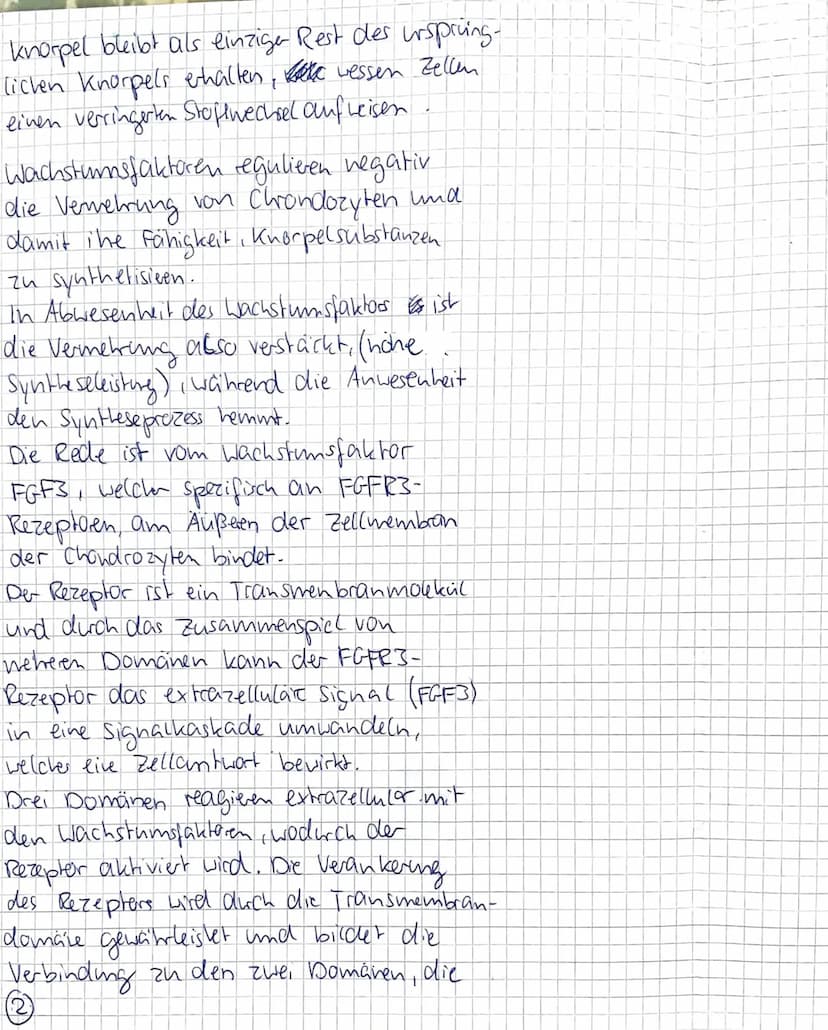 Knorpel bleibt als einziger Rest des ursprüng-
lichen Knorpels erhalten, wessen Zellen
einen verringerten Stoffwechsel aufweisen.
Wachstumsfaktoren regulieren negativ
die Vermehrung von Chrondozyten und
damit ihre Fähigkeit, Knorpelsubstanzen
zu synthetisieren.
In Abwesenheit des Wachstumsfaktors ist
die Vermehrung also verstärkt, (hohe
Syntheseleistung), während die Anwesenheit
den Syntheseprozess hemmt.
Die Rede ist vom Wachstumsfaktor
FGF3, welcher spezifisch an FGFR3-
Rezeptoren, am Äußeren der Zellmembran
der Chondrozyten bindet.
Der Rezeptor ist ein Transmembranmolekül
und durch das Zusammenspiel von
mehreren Domänen kann der FGFR3-
Rezeptor das extrazelluläre Signal (FGF3)
in eine Signalkaskade umwandeln,
welches eine Zellantwort bewirkt.
Drei Domänen reagieren extrazellulär mit
den Wachstumsfaktoren, wodurch der
Rezeptor aktiviert wird. Die Verankerung
des Rezeptors wird durch die Transmembran-
domäne gewährleistet und bildet die
Verbindung zu den zwei Domänen, die
2